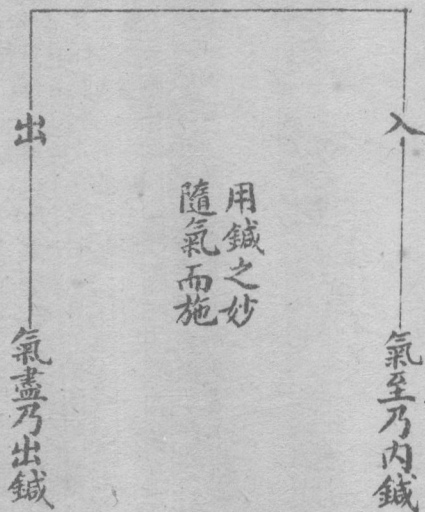 入
氣至乃内鍼
用鍼之妙
隨氣而施
出
氣盡乃出鍼